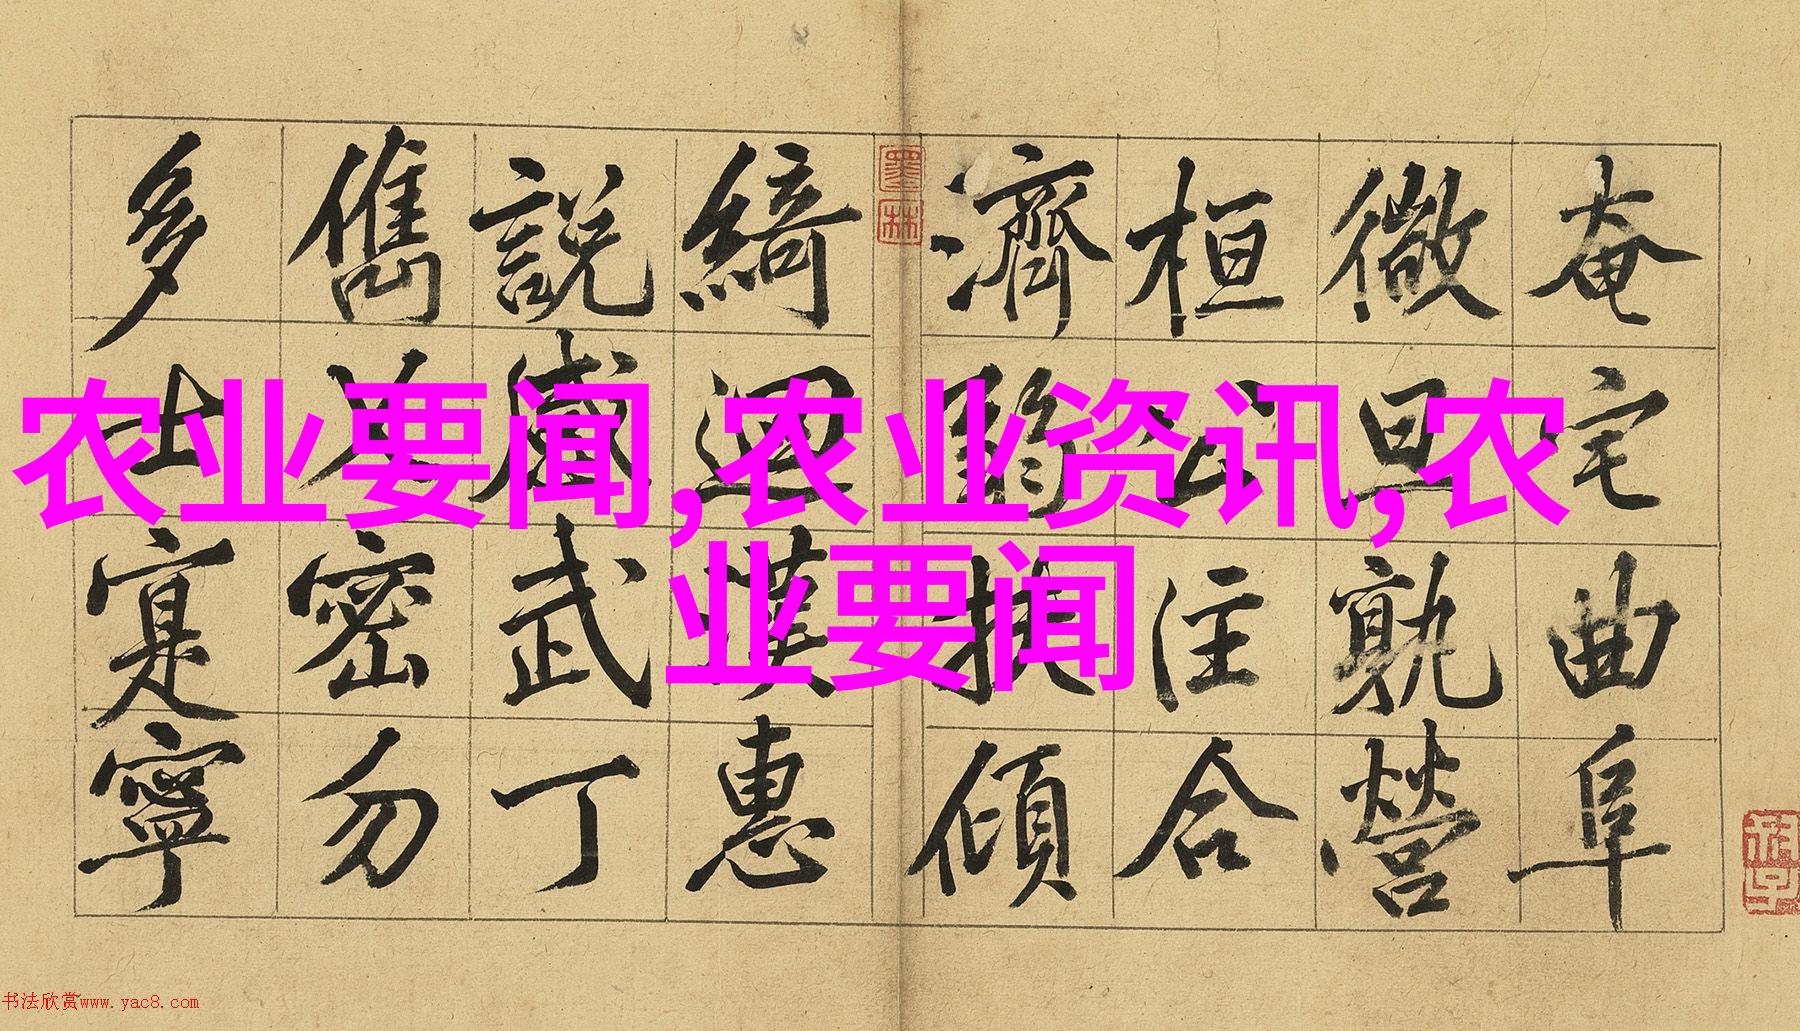 农业要闻,农业资讯,农
业要闻
奄宅曲阜
微旦孰營
桓公合
濟扶傾
綺迴漢惠
說感武丁
儁乂密勿
多士寔寧
墨林
书法欣赏www.yac8.com